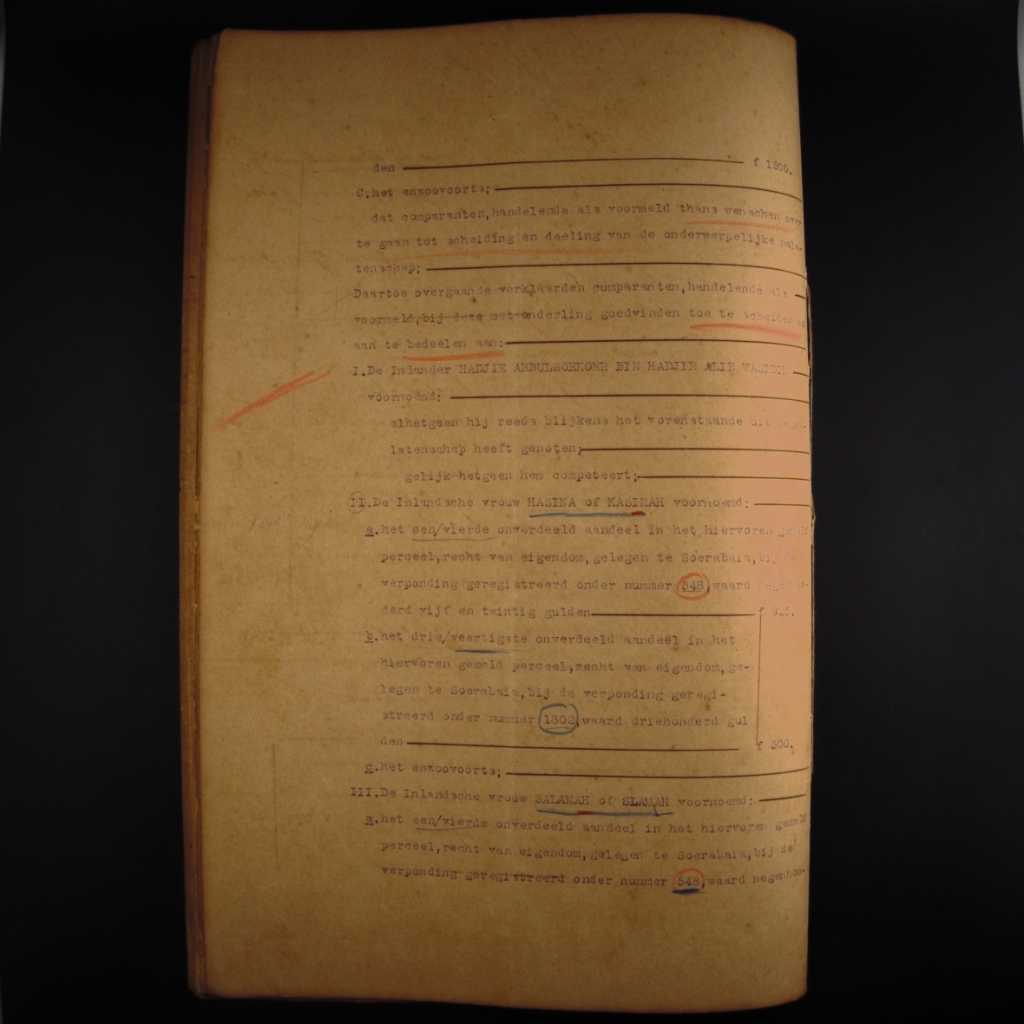 den f 1800.
C.het enzoovoorts;
dat comparanten,handelende als voormeld thans wenschen over
te gaan tot scheiding en deeling van de onderwerpelijke nala-
tenschap;
Daartoe overgaande verklaarden comparanten,handelende als
voormeld,bij deze met onderling goedvinden toe te scheiden en
aan te bedeelen aan:
I.De Inlander HADJIE ABDULSOEKOER BIN HADJIE ALIE
voornoemd:
alhetgeen hij reeds blijkens het vorenstaande uit
latenschap heeft genoten;
gelijk hetgeen hem competeert;
II.De Inlandsche vrouw HASINA of KASIMAH voornoemd:
a.het een/vierde onverdeeld aandeel in het hiervoren gemeld
perceel,recht van eigendom,gelegen te Soerabaia,bij de
verponding geregistreerd onder nummer 548,waard negenhon-
derd vijf en twintig gulden f 925.
b.het drie/veertigste onverdeeld aandeel in het
hiervoren gemeld perceel,recht van eigendom,ge-
legen te Soerabaia,bij de verponding geregi-
streerd onder nummer 1302,waard driehonderd gul
den f 300.
c.het enzoovoorts;
III.De Inlandsche vrouw SALAMAH of SLAMAH voornoemd:
a.het een/vierde onverdeeld aandeel in het hiervoren gemeld
perceel,recht van eigendom,gelegen te Soerabaia,bij de
verponding geregistreerd onder nummer 548,waard negenhon-